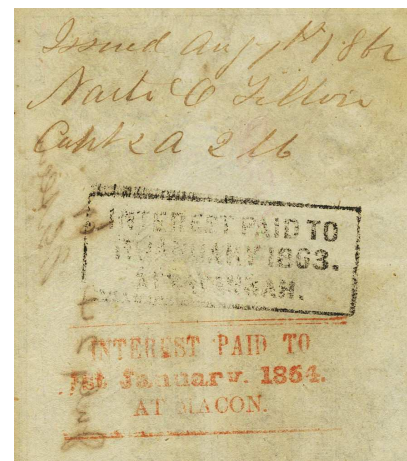 Issued Aug 1862
Capt & A Q M
INTEREST PAID TO
JANUARY 1863.
AT SAVANNAH.
INTEREST PAID TO
1st January. 1864.
AT MACON.